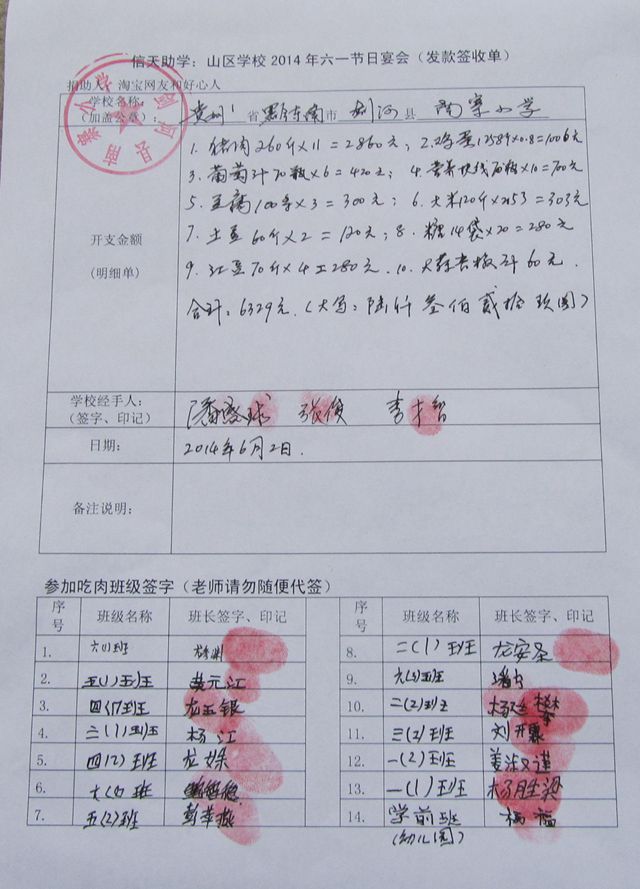 信天助学：山区学校 2014 年六一节日宴会（发款签收单）
捐助人：淘宝网友和好心人
学校名称：
（加盖公章）：
贵州 省 黔东南 市 剑河 县 南寨小学
开支金额
（明细单）
1. 猪肉 260斤×11 = 2860元； 2. 鸡蛋 1258个×0.8=1006元
3. 葡萄汁70瓶×6=420元； 4. 营养快线70瓶×10=700元
5. 豆腐100条×3=300元； 6. 大米120斤×2.53=303元
7. 土豆60斤×2=120元； 8. 糖14袋×20=280元
9. 红豆70斤×4=280元. 10. 大蒜 60元.
合计：6329元.（大写：陆仟叁佰贰拾玖圆）
学校经手人：
（签字、印记）
日期：
2014年6月2日.
备注说明：
参加吃肉班级签字（老师请勿随便代签）
序号 班级名称 班长签字、印记 序号 班级名称 班长签字、印记
1. 六(1)班 8. 二(1)班 龙安圣
2. 五(1)班 黄元江 9.
3. 四(1)班 龙玉银 10. 二(2)班
4. 三(1)班 杨江 11. 三(2)班
5. 四(2)班 12. 一(2)班
6. 13. 一(1)班 杨胜梁
7. 五(2)班 14. 学前班 杨福
(幼儿园)